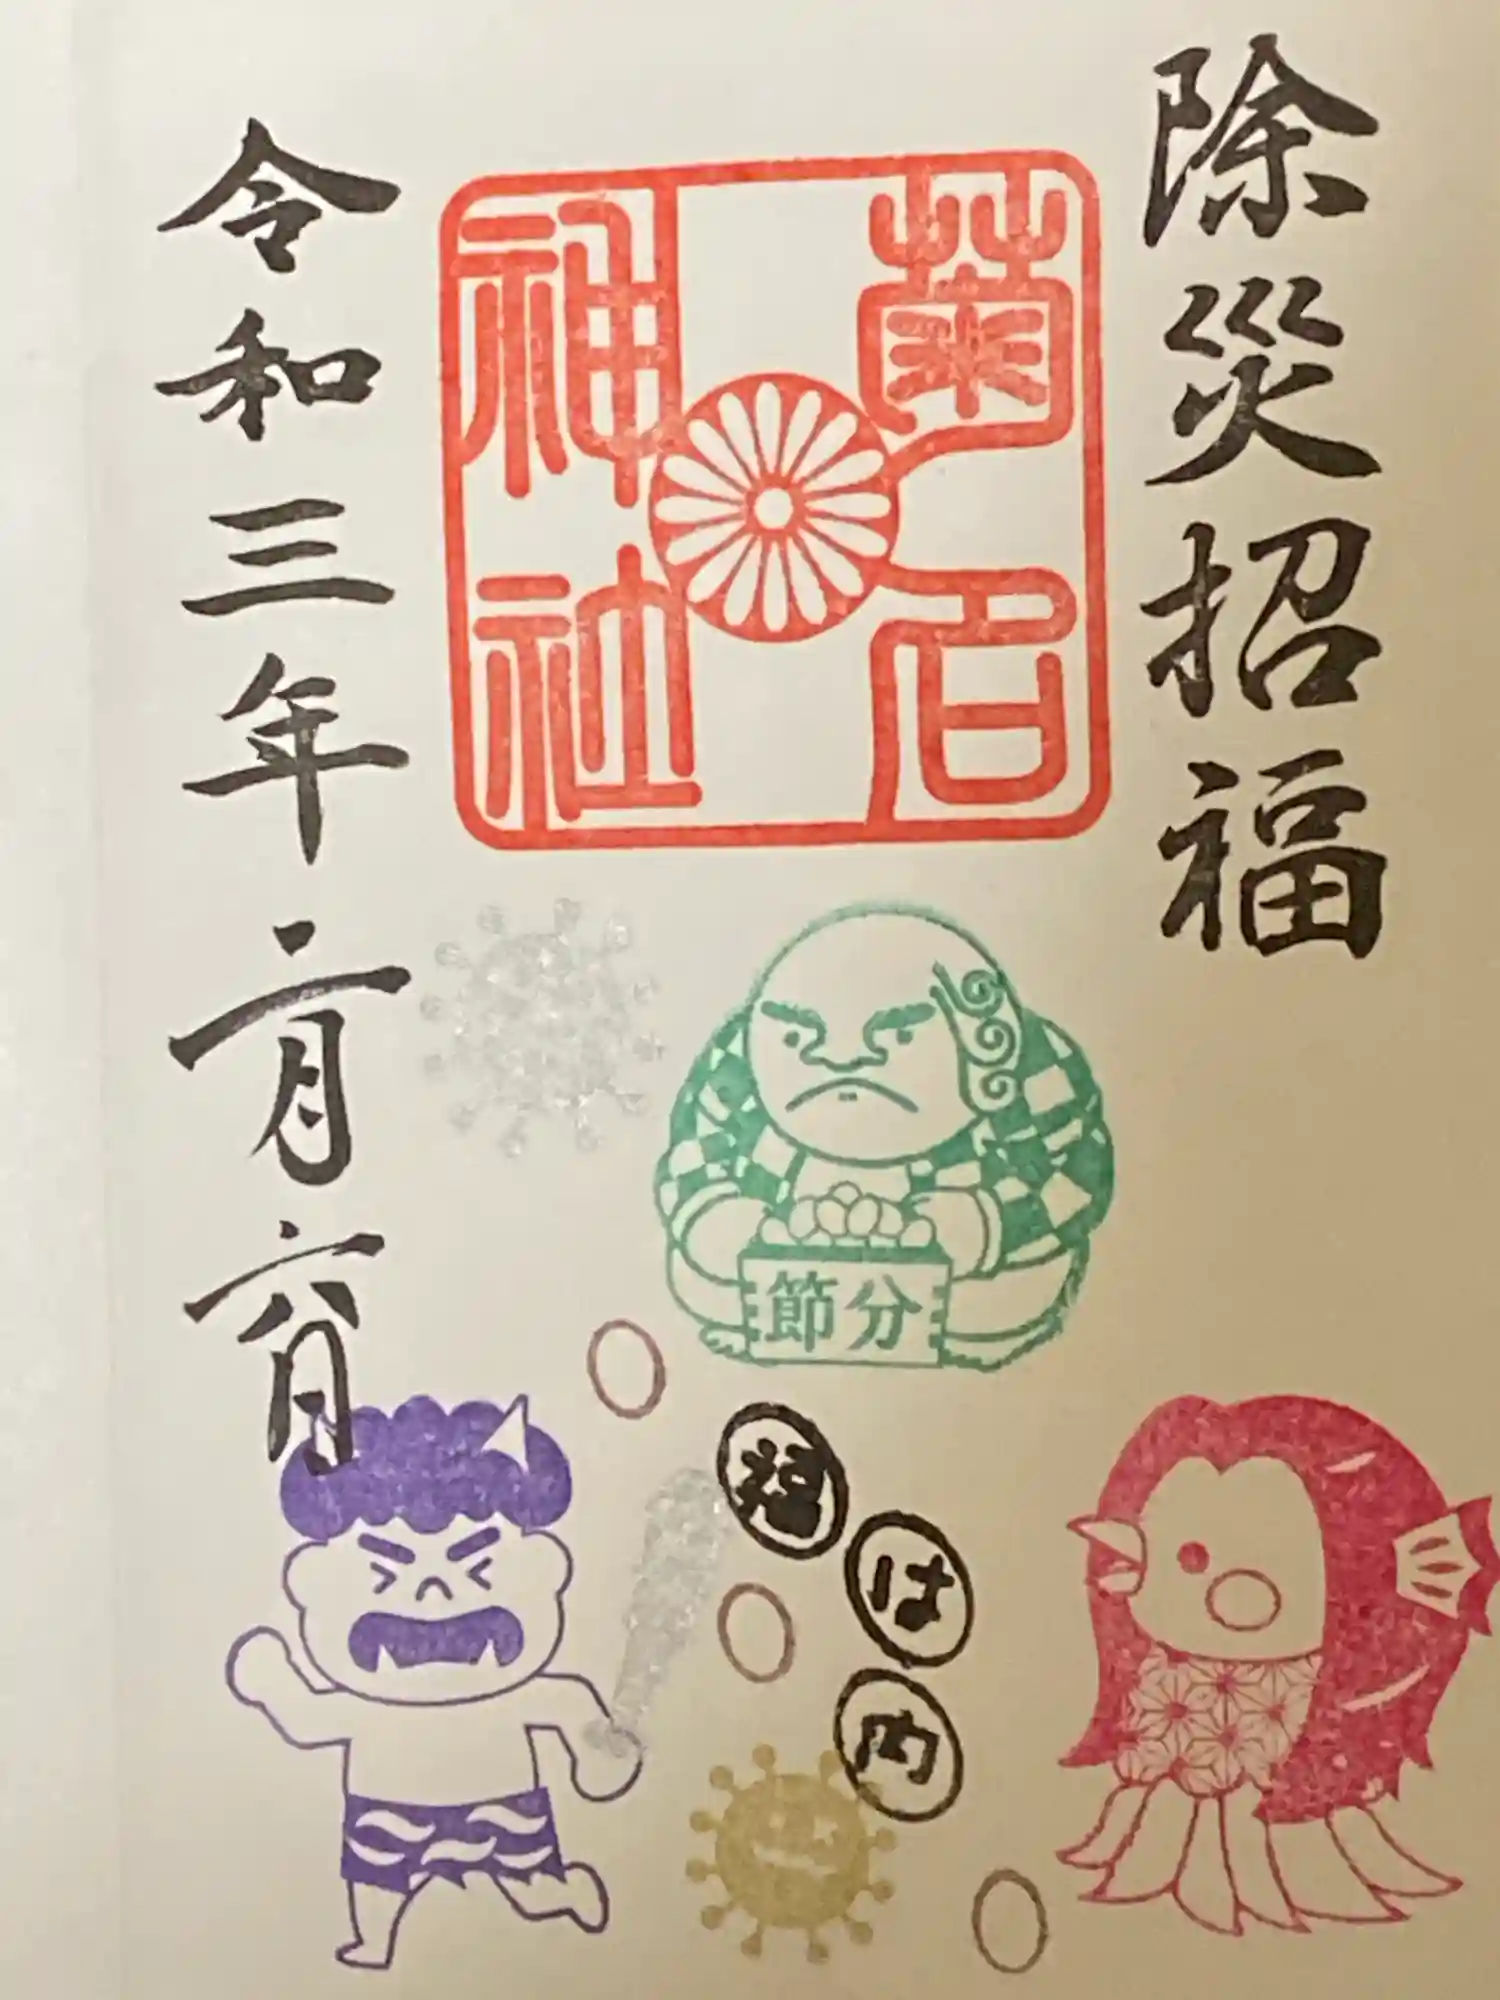 除災招福
菊名
神社
令和三年二月六日
節分
福は内